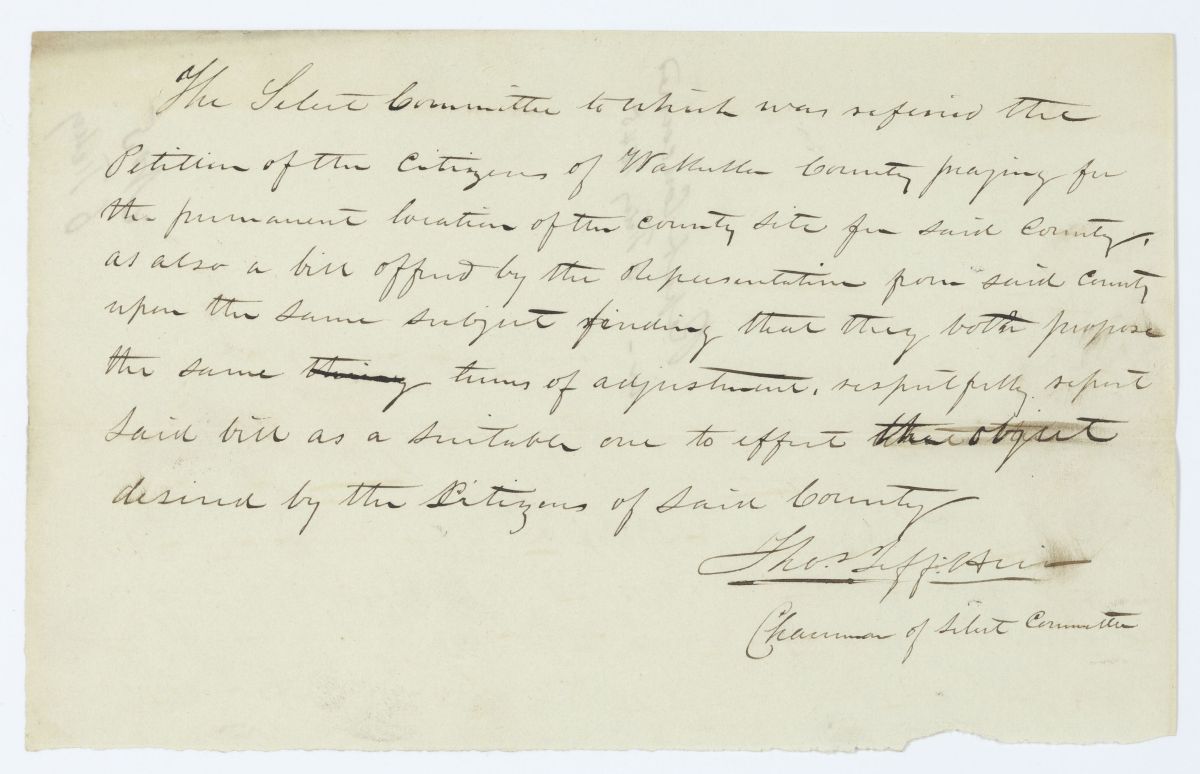 The Select Committee to which was referred the
Petition of the Citizens of Wakulla County praying for
the permanent location of the county site for said County,
as also a bill offered by the Representative from said County
upon the same subject finding that they both propose
the same thing terms of adjustment, respectfully report
said bill as a suitable one to effect the object
desired by the Citizens of said County
Thos. Jeff.
Chairman of Select Committee